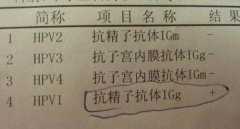 简称 项目名称 结果
1 HPV2 抗精子抗体IGm -
2 HPV3 抗子宫内膜抗体IGg -
3 HPV4 抗子宫内膜抗体IGm -
4 HPV1 抗精子抗体IGg +